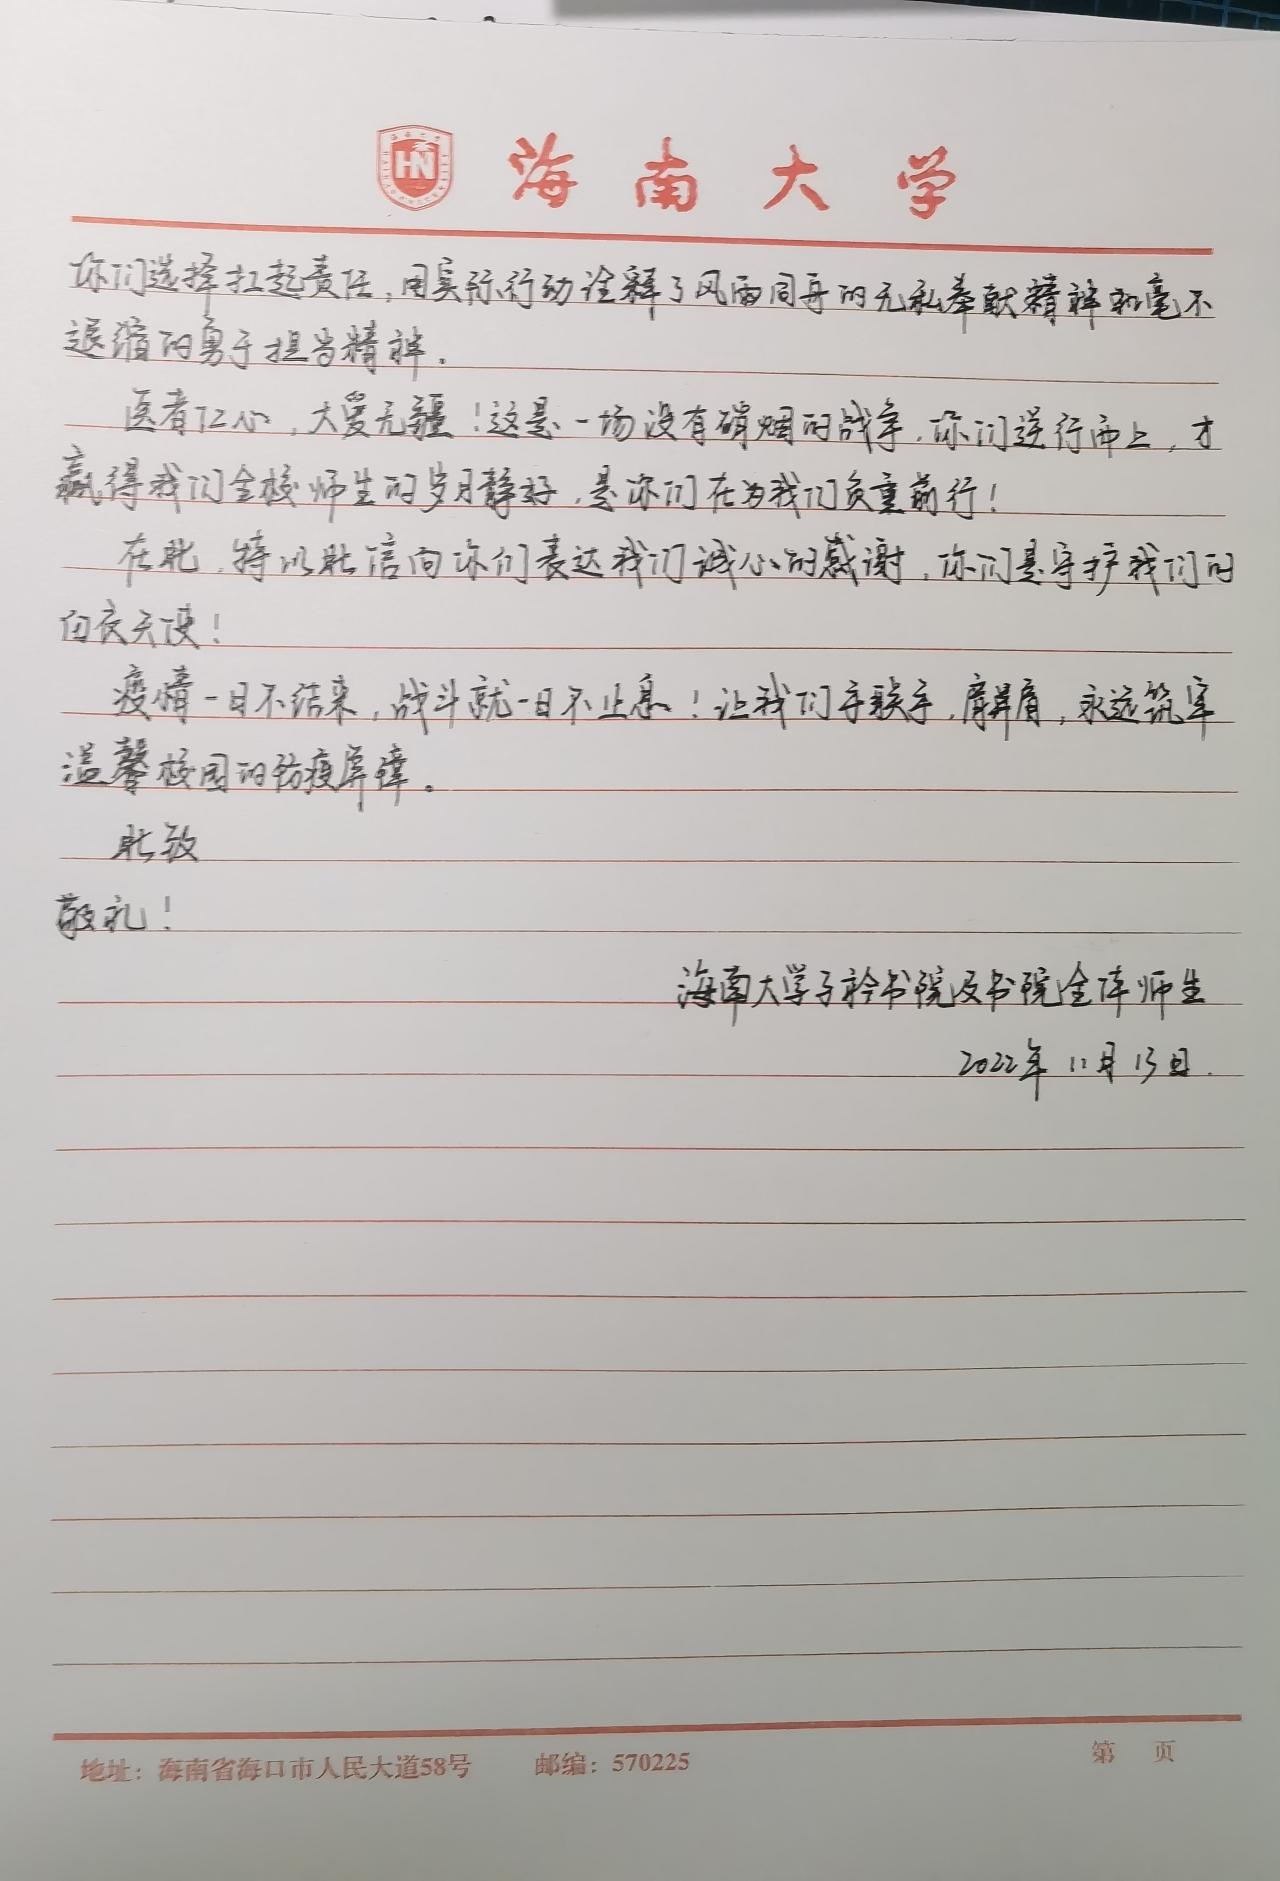 海南大学
你们选择扛起责任，用实际行动诠释了风雨同舟的无私奉献精神和毫不
退缩的勇于担当精神。
医者仁心，大爱无疆！这是一场没有硝烟的战争，你们逆行而上，才
赢得我们全校师生的岁月静好，是你们在为我们负重前行！
在此，特以此信向你们表达我们诚心的感谢，你们是守护我们的
白衣天使！
疫情一日不结束，战斗就一日不止息！让我们手联手，肩并肩，永远筑牢
温馨校园的防疫屏障。
此致
敬礼！
海南大学子衿书院及书院全体师生
2022年11月13日.
地址：海南省海口市人民大道58号 邮编：570225 第 页